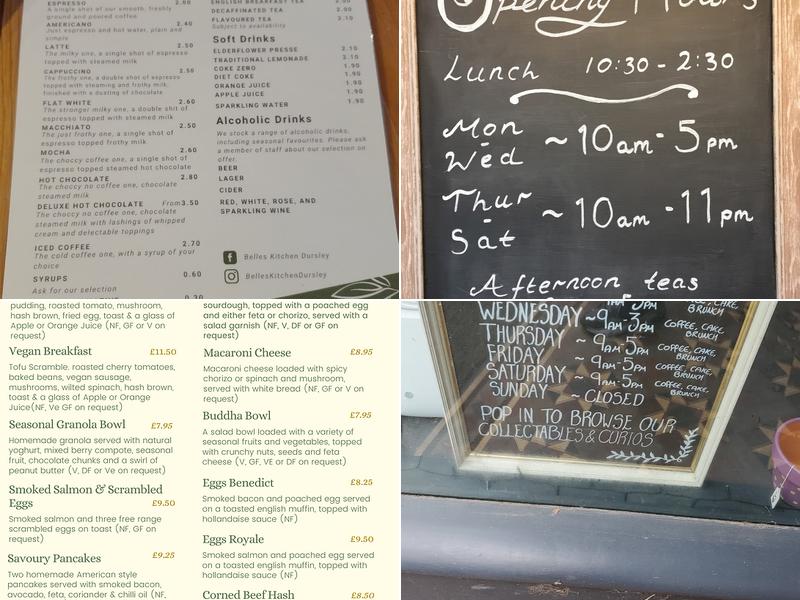 ESPRESSO 2.00
A single shot of our smooth, freshly
ground and poured coffee
AMERICANO 2.40
Just espresso and hot water, plain and
simple
LATTE 2.50
The milky one, a single shot of espresso
topped with steamed milk
CAPPUCCINO 2.50
The frothy one, a double shot of espresso
topped with steaming and frothy milk,
finished with a dusting of chocolate
FLAT WHITE 2.60
The stronger milky one, a double shit of
espresso topped with steamed milk
MACCHIATO 2.50
The just frothy one, a single shot of
espresso topped frothy milk
MOCHA 2.60
The choccy coffee one, a single shot of
espresso topped steamed hot chocolate
HOT CHOCOLATE 2.80
The choccy no coffee one, chocolate
steamed milk
DELUXE HOT CHOCOLATE From3.50
The choccy no coffee one, chocolate
steamed milk with lashings of whipped
cream and delectable toppings
ICED COFFEE 2.70
The cold coffee one, with a syrup of your
choice
SYRUPS 0.60
Ask for our selection
ENGLISH BREAKFAST TEA
DECAFFINATED TEA 2.00
FLAVOURED TEA 2.10
Subject to availability
Soft Drinks
ELDERFLOWER PRESSE 2.10
TRADITIONAL LEMONADE 2.10
COKE ZERO 1.90
DIET COKE 1.90
ORANGE JUICE 1.90
APPLE JUICE 1.90
SPARKLING WATER 1.90
Alcoholic Drinks
We stock a range of alcoholic drinks,
including seasonal favourites. Please ask
a member of staff about our selection on
offer.
BEER
LAGER
CIDER
RED, WHITE, ROSE, AND
SPARKLING WINE
BellesKitchenDursley
BellesKitchenDursley
Opening Hours
Lunch 10:30 - 2:30
Mon - Wed ~ 10am - 5pm
Thur - Sat ~ 10am - 11pm
Afternoon teas
pudding, roasted tomato, mushroom,
hash brown, fried egg, toast & a glass of
Apple or Orange Juice (NF, GF or V on
request)
Vegan Breakfast £11.50
Tofu Scramble, roasted cherry tomatoes,
baked beans, vegan sausage,
mushrooms, wilted spinach, hash brown,
toast & a glass of Apple or Orange
Juice(NF, Ve GF on request)
Seasonal Granola Bowl £7.95
Homemade granola served with natural
yoghurt, mixed berry compote, seasonal
fruit, chocolate chunks and a swirl of
peanut butter (V, DF or Ve on request)
Smoked Salmon & Scrambled
Eggs £9.50
Smoked salmon and three free range
scrambled eggs on toast (NF, GF on
request)
Savoury Pancakes £9.25
Two homemade American style
pancakes served with smoked bacon,
avocado, feta, coriander & chilli oil (NF,
sourdough, topped with a poached egg
and either feta or chorizo, served with a
salad garnish (NF, V, DF or GF on
request)
Macaroni Cheese £8.95
Macaroni cheese loaded with spicy
chorizo or spinach and mushroom,
served with white bread (NF, GF or V on
request)
Buddha Bowl £7.95
A salad bowl loaded with a variety of
seasonal fruits and vegetables, topped
with crunchy nuts, seeds and feta
cheese (V, GF, VE or DF on request)
Eggs Benedict £8.25
Smoked bacon and poached egg served
on a toasted english muffin, topped with
hollandaise sauce (NF)
Eggs Royale £9.50
Smoked salmon and poached egg served
on a toasted english muffin, topped with
hollandaise sauce (NF)
Corned Beef Hash £8.50
WEDNESDAY ~ 9AM-3PM COFFEE, CAKE, BRUNCH
THURSDAY ~ 9AM-5PM COFFEE, CAKE, BRUNCH
FRIDAY ~ 9AM-5PM
SATURDAY ~ 9AM-5PM COFFEE, CAKE, BRUNCH
SUNDAY ~ CLOSED
POP IN TO BROWSE OUR
COLLECTABLES & CURIOS